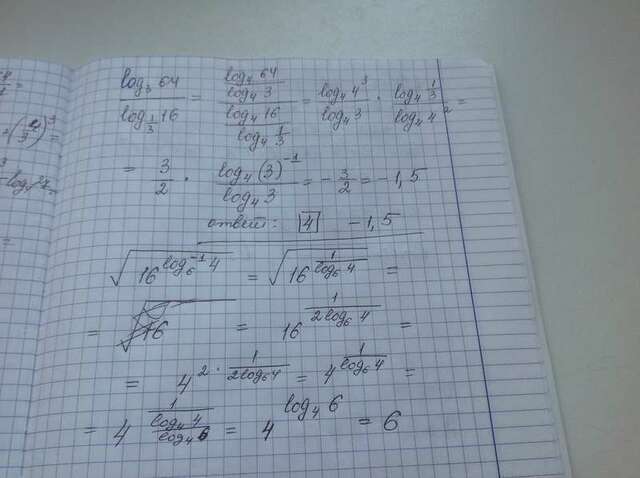 log₃64 / log_{1/3}16 = (log₄64 / log₄3) / (log₄16 / log₄(1/3)) = log₄4³ / log₄3 · log₄(1/3) / log₄4² =
= 3/2 · log₄(3)⁻¹ / log₄3 = - 3/2 = - 1,5
ответ: 4 -1,5
√(16^{log₆⁻¹4}) = √(16^{1/log₆4}) =
= √16 = 16^{1/(2log₆4)} =
= 4^{2 · 1/(2log₆4)} = 4^{1/log₆4} =
= 4^{1/(log₄4/log₄6)} = 4^{log₄6} = 6